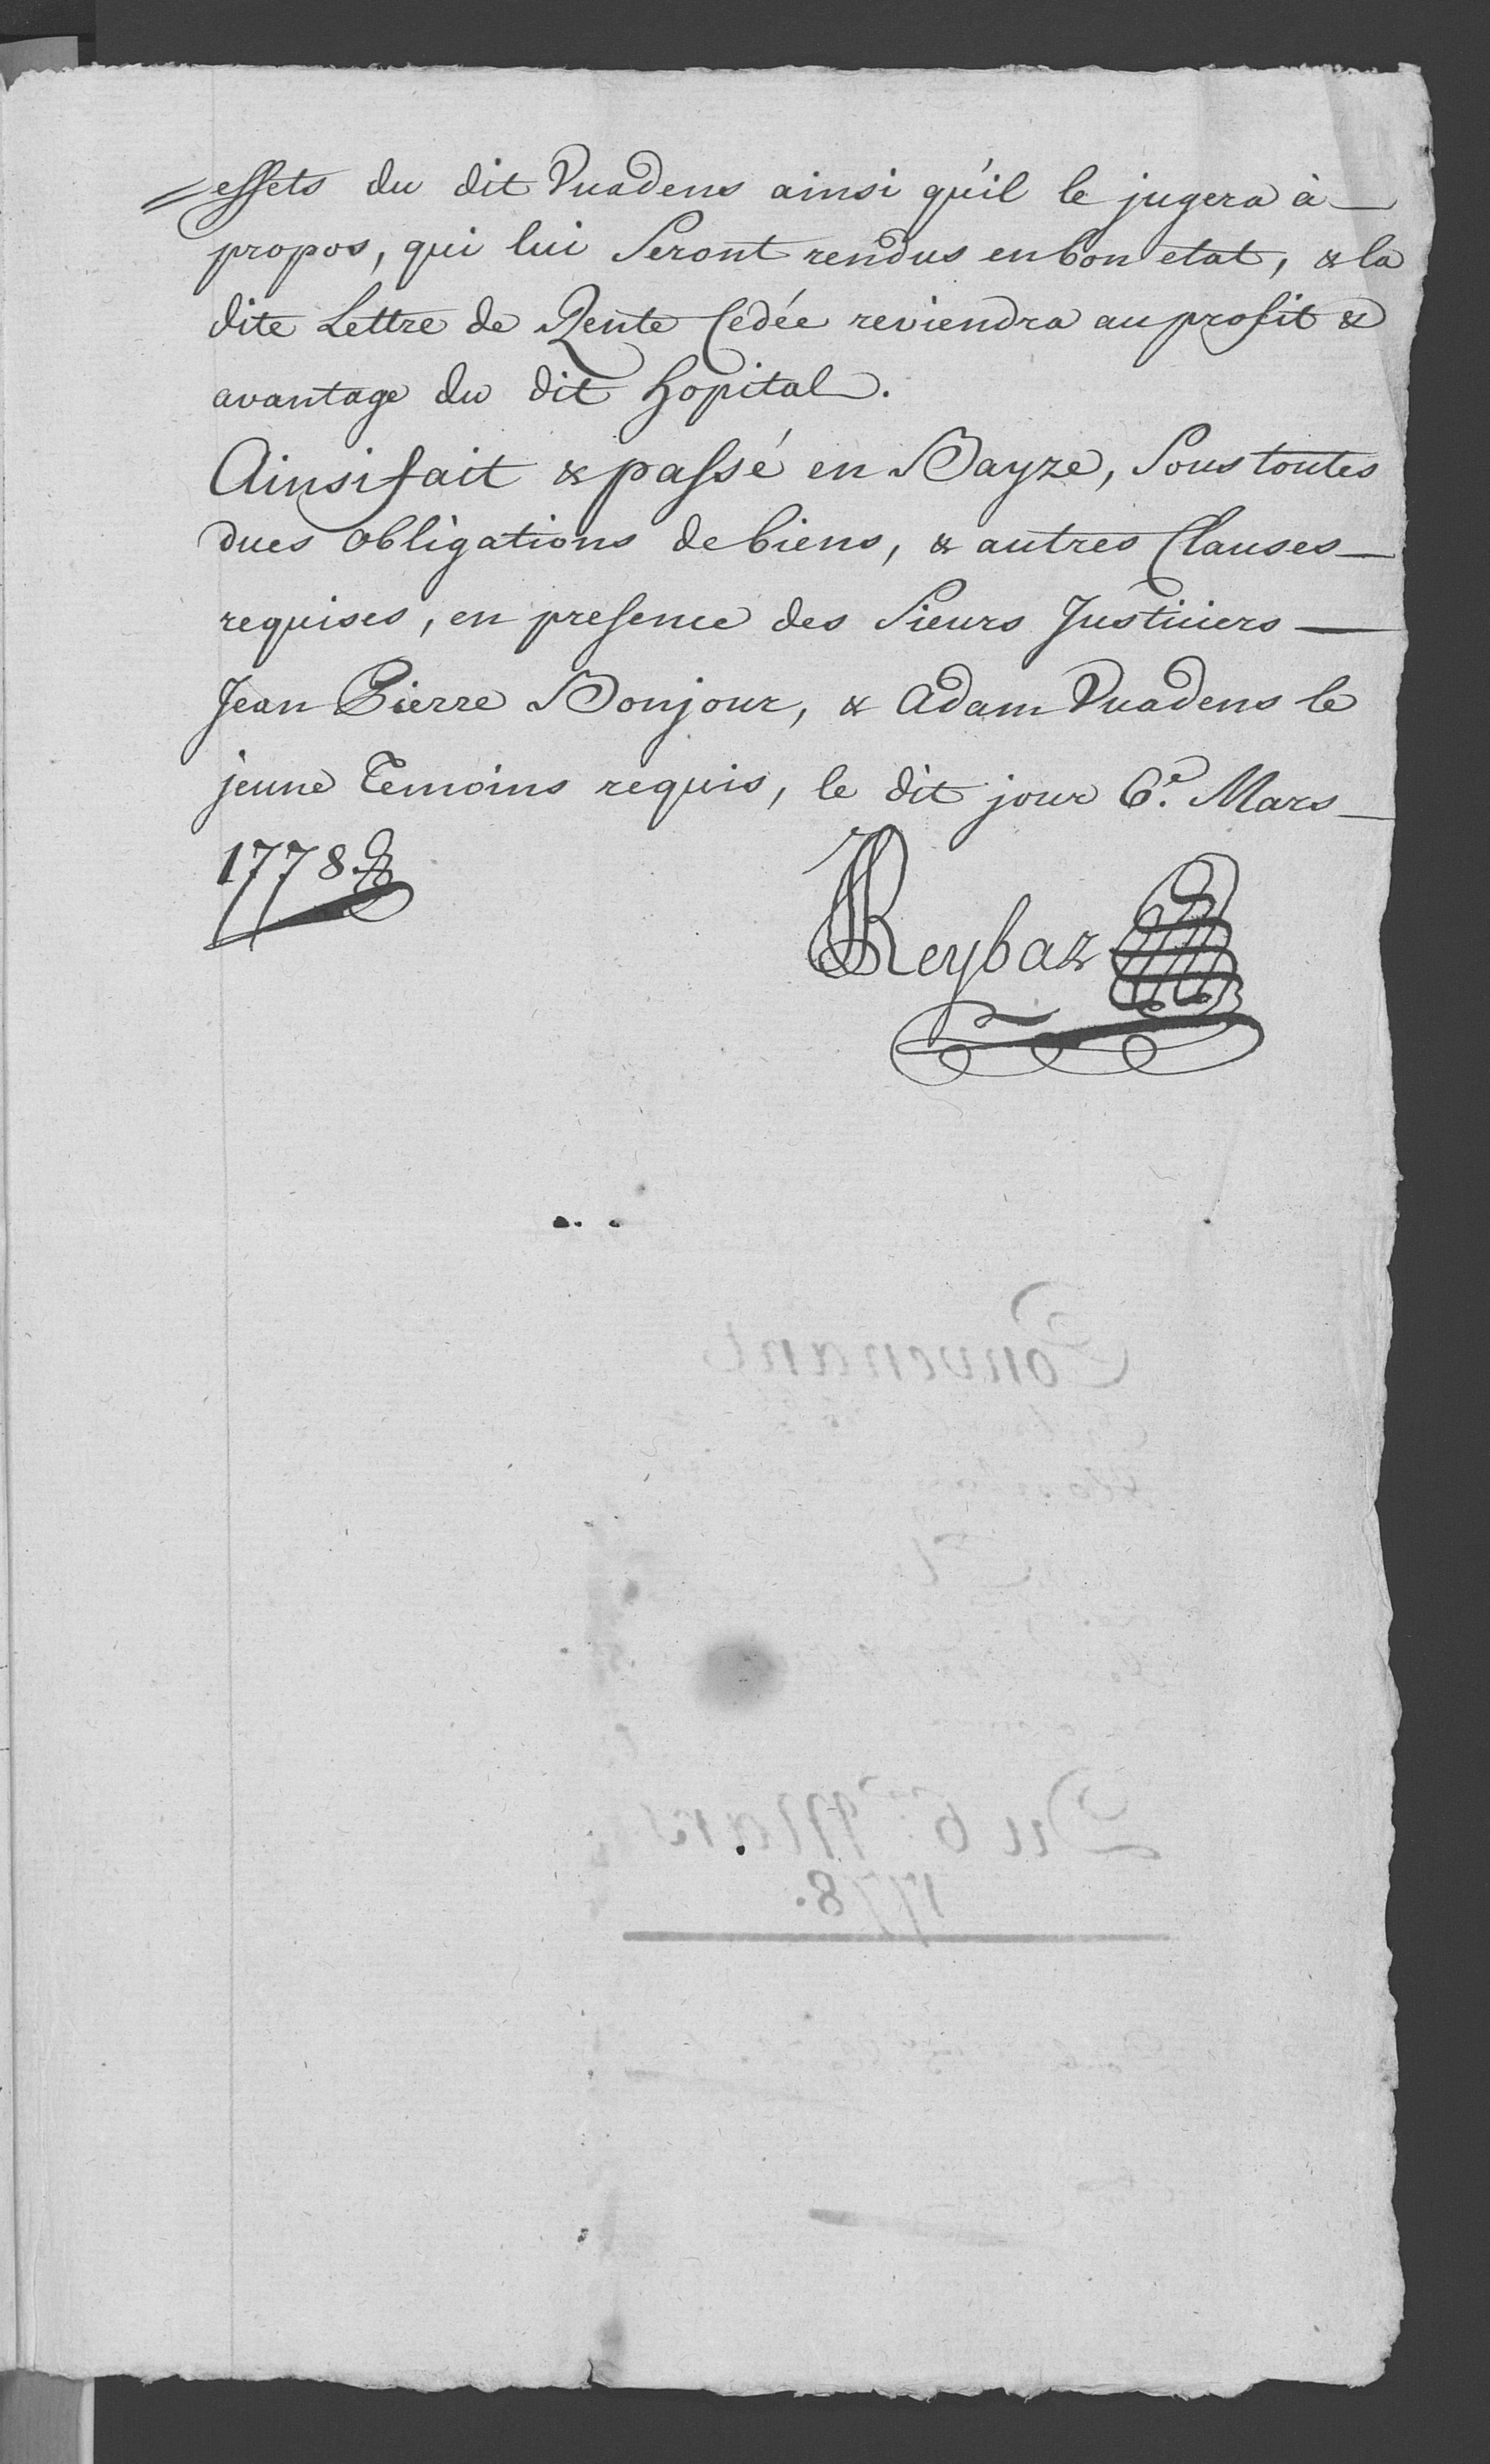 effets du dit Vuadens ainsi qu'il le jugera à
propos, qui lui Seront rendus en bon etat, & la
dite Lettre de Rente Cedée reviendra au profit &
avantage du dit hopital.
Ainsi fait & passé en Bayze, Sous toutes
dues obligations de biens, & autres Clauses
requises, en presence des Sieurs Justiciers
Jean Pierre Bonjour, & Adam Vuadens le
jeune Temoins requis, le dit jour 6.e Mars
1778.
Reybaz
Convenant
Du 6.e Mars
1778.